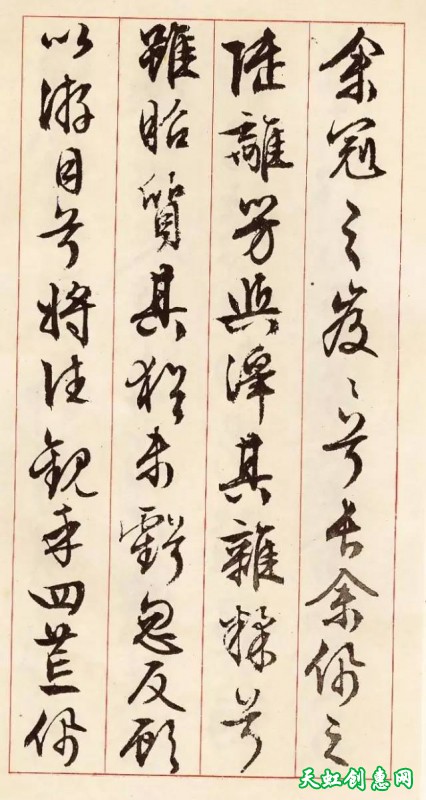 余冠之岌〻兮长余佩之
陆離芳與澤其雜糅兮
雖昭質其猶未虧忽反顧
以游目兮将往觀乎四荒佩
天虹创惠网